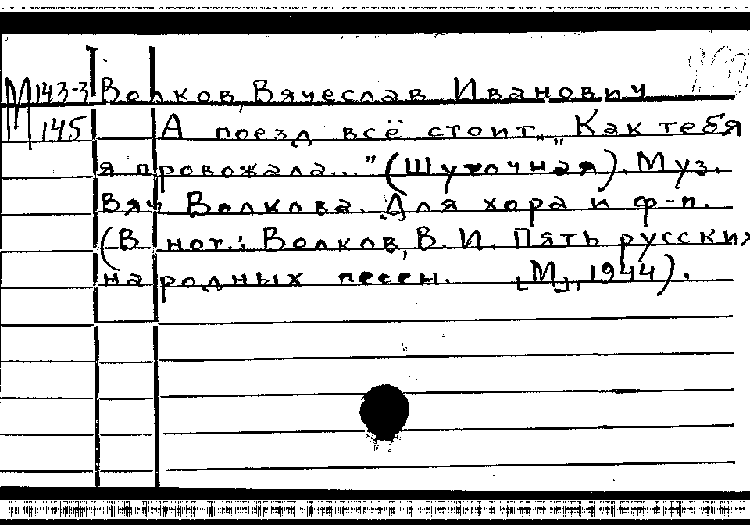 М 143-3 Волков, Вячеслав Иванович
145 А поезд всё стоит. „Как тебя
я провожала..." (Шуточная). Муз.
Вяч. Волкова. Для хора и ф-п.
(В нот.: Волков, В. И. Пять русских
народных песен. [М.], 1944).